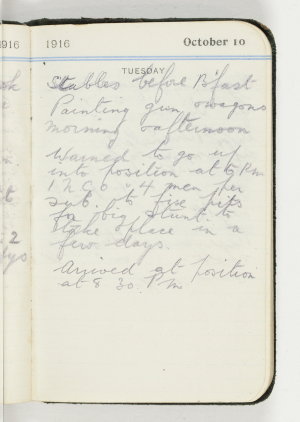 1916
1916 October 10
TUESDAY
Stables before B'fast
Painting gun & wagons
morning & afternoon
Warned to go up
into position at 6 Pm
1 N C O & 4 men per
sub.
for big stunt to
take place in a
few days.
Arrived at position
at 8 30. P m